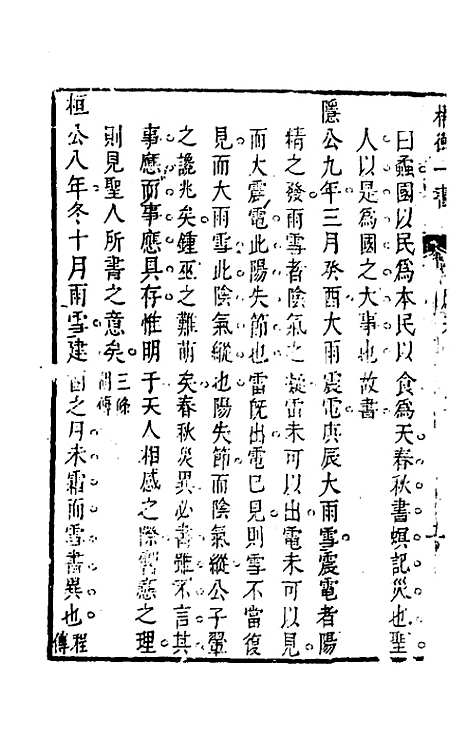 曰蟊國以民為本民以食為天春秋書螟記災也聖
人以是為國之大事也故書
隱公九年三月癸酉大雨震電庚辰大雨雪震電者陽
精之發雨雪者陰氣之凝雷未可以出電未可以見
而大震電此陽失節也雷旣出電已見則雪不當復
見而大雨雪此陰氣縱也陽失節而陰氣縱公子翬
之讒兆矣鍾巫之難萌矣春秋災異必書雖不言其
事應而事應具存惟明于天人相感之際響應之理
則見聖人所書之意矣三條胡傳
桓公八年冬十月雨雪建酉之月未霜而雪書異也程傳